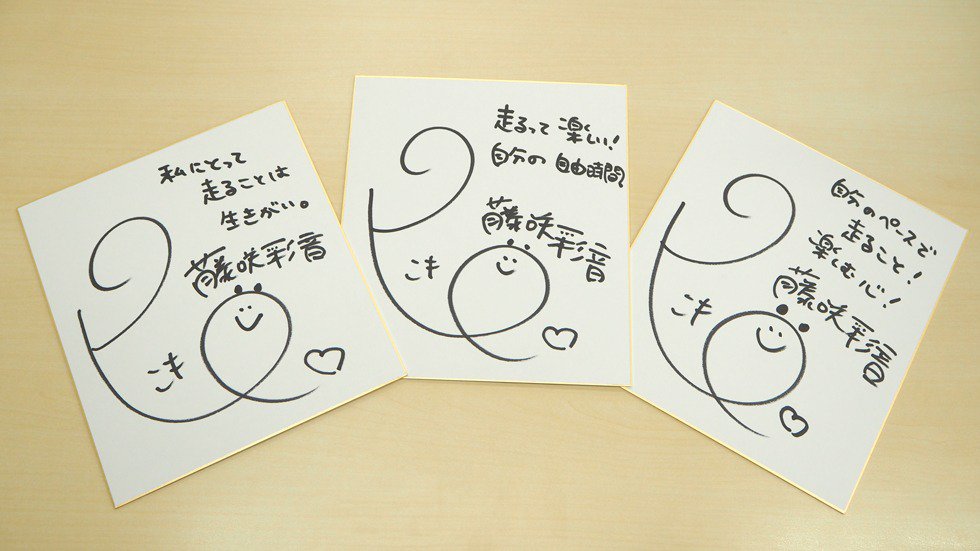 私にとって
走ることは
生きがい。
藤咲彩音
走るって楽しい!
自分の自由時間
藤咲彩音
自分のペースで
走ること!
楽しむ心!
藤咲彩音